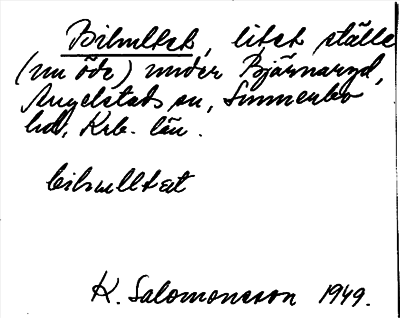 Bihulltet, litet ställe
(nu öde) under Bjärnaryd,
Angelstads sn, Sunnerbo
hd, Krb. län.
bihulltet
K. Salomonsson 1949.